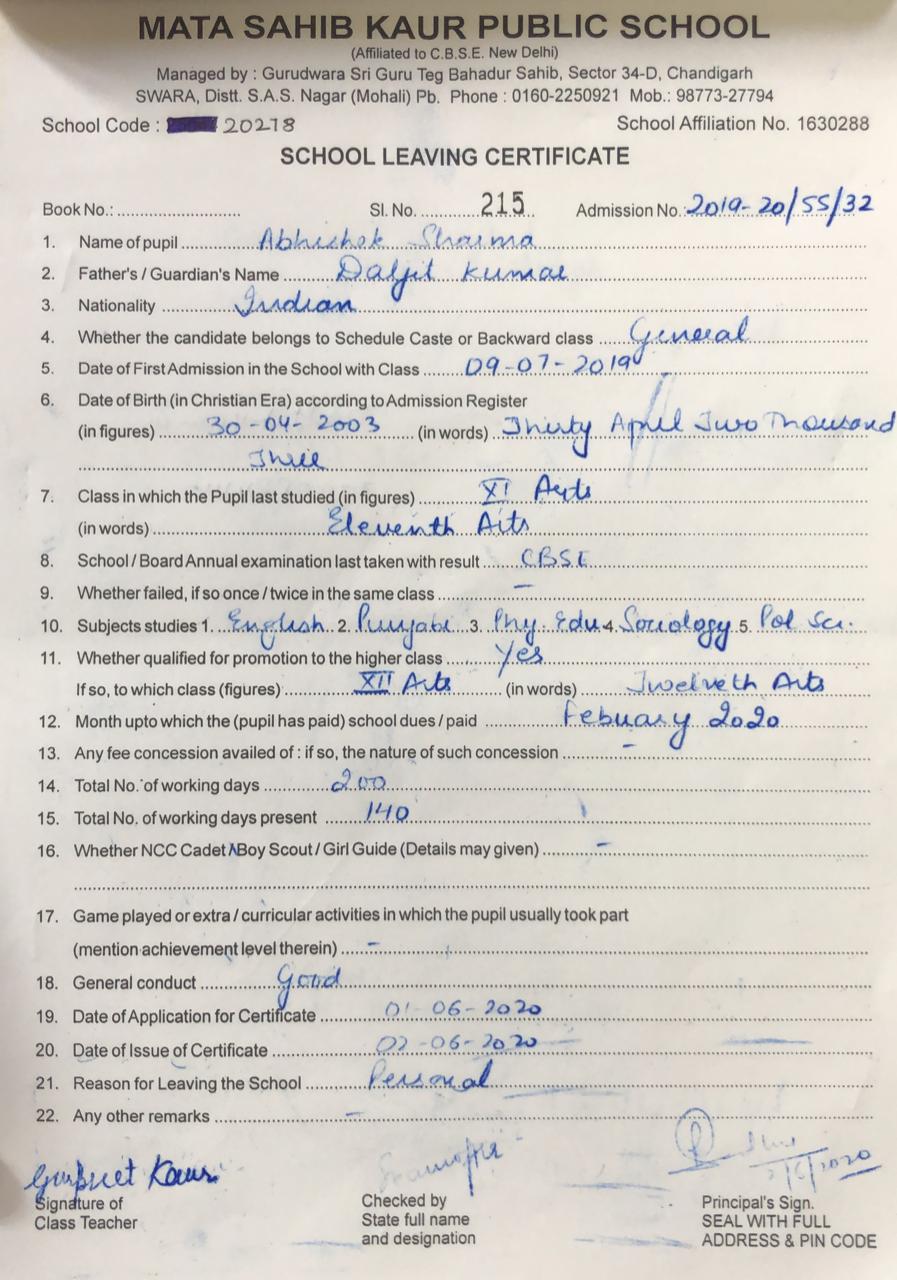 MATA SAHIB KAUR PUBLIC SCHOOL
(Affiliated to C.B.S.E. New Delhi)
Managed by : Gurudwara Sri Guru Teg Bahadur Sahib, Sector 34-D, Chandigarh
SWARA, Distt. S.A.S. Nagar (Mohali) Pb. Phone : 0160-2250921 Mob.: 98773-27794
School Code : 20278 School Affiliation No. 1630288
SCHOOL LEAVING CERTIFICATE
Book No.: Sl. No. 215 Admission No. 2019-20/55/32
1. Name of pupil Abhishek Sharma
2. Father's / Guardian's Name Daljit Kumar
3. Nationality Indian
4. Whether the candidate belongs to Schedule Caste or Backward class General
5. Date of First Admission in the School with Class 09-07-2019
6. Date of Birth (in Christian Era) according to Admission Register
(in figures) 30-04-2003 (in words) Thirty April Two Thousand
Three
7. Class in which the Pupil last studied (in figures) XI Arts
(in words) Eleventh Arts
8. School / Board Annual examination last taken with result CBSE
9. Whether failed, if so once / twice in the same class –
10. Subjects studies 1. English 2. Punjabi 3. Phy. Edu 4. Sociology 5. Pol Sci.
11. Whether qualified for promotion to the higher class Yes
If so, to which class (figures) XII Arts (in words) Twelveth Arts
12. Month upto which the (pupil has paid) school dues / paid Febuary 2020
13. Any fee concession availed of : if so, the nature of such concession –
14. Total No. of working days 200
15. Total No. of working days present 140
16. Whether NCC Cadet \ Boy Scout / Girl Guide (Details may given) –
17. Game played or extra / curricular activities in which the pupil usually took part
(mention achievement level therein) –
18. General conduct Good
19. Date of Application for Certificate 01-06-2020
20. Date of Issue of Certificate 02-06-2020
21. Reason for Leaving the School Personal
22. Any other remarks –
Gurpreet Kaur 2/6/2020
Signature of Checked by Principal's Sign.
Class Teacher State full name SEAL WITH FULL
and designation ADDRESS & PIN CODE